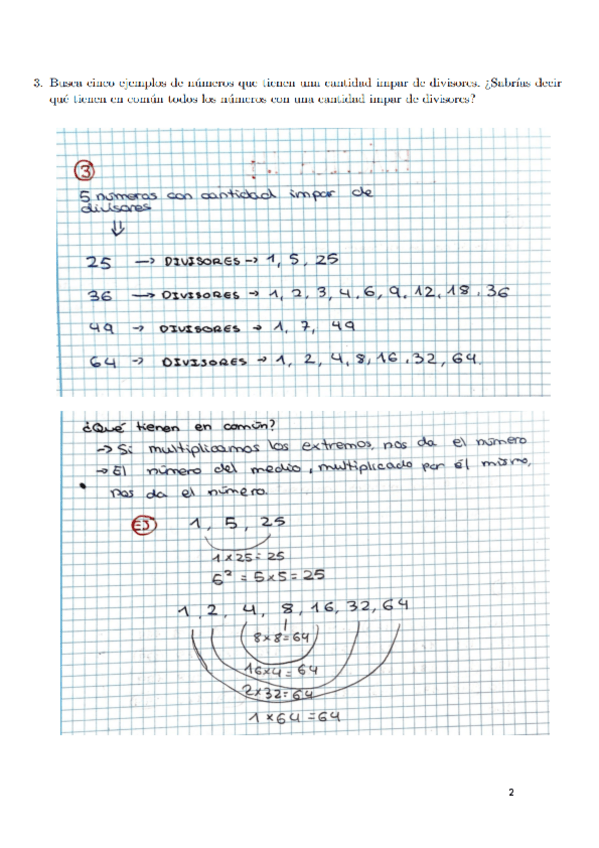 3. Busca cinco ejemplos de números que tienen una cantidad impar de divisores. ¿Sabrías decir
qué tienen en común todos los números con una cantidad impar de divisores?
3
5 números con cantidad impar de
divisores
25 → DIVISORES → 1, 5, 25
36 → DIVISORES → 1, 2, 3, 4, 6, 9, 12, 18, 36
49 → DIVISORES → 1, 7, 49
64 → DIVISORES → 1, 2, 4, 8, 16, 32, 64.
¿Qué tienen en común?
→ Si multiplicamos los extremos, nos da el número
→ El número del medio, multiplicado por él mismo,
nos da el número.
EJ 1, 5, 25
1 x 25 = 25
5² = 5 x 5 = 25
1, 2, 4, 8, 16, 32, 64
8 x 8 = 64
16 x 4 = 64
2 x 32 = 64
1 x 64 = 64
2